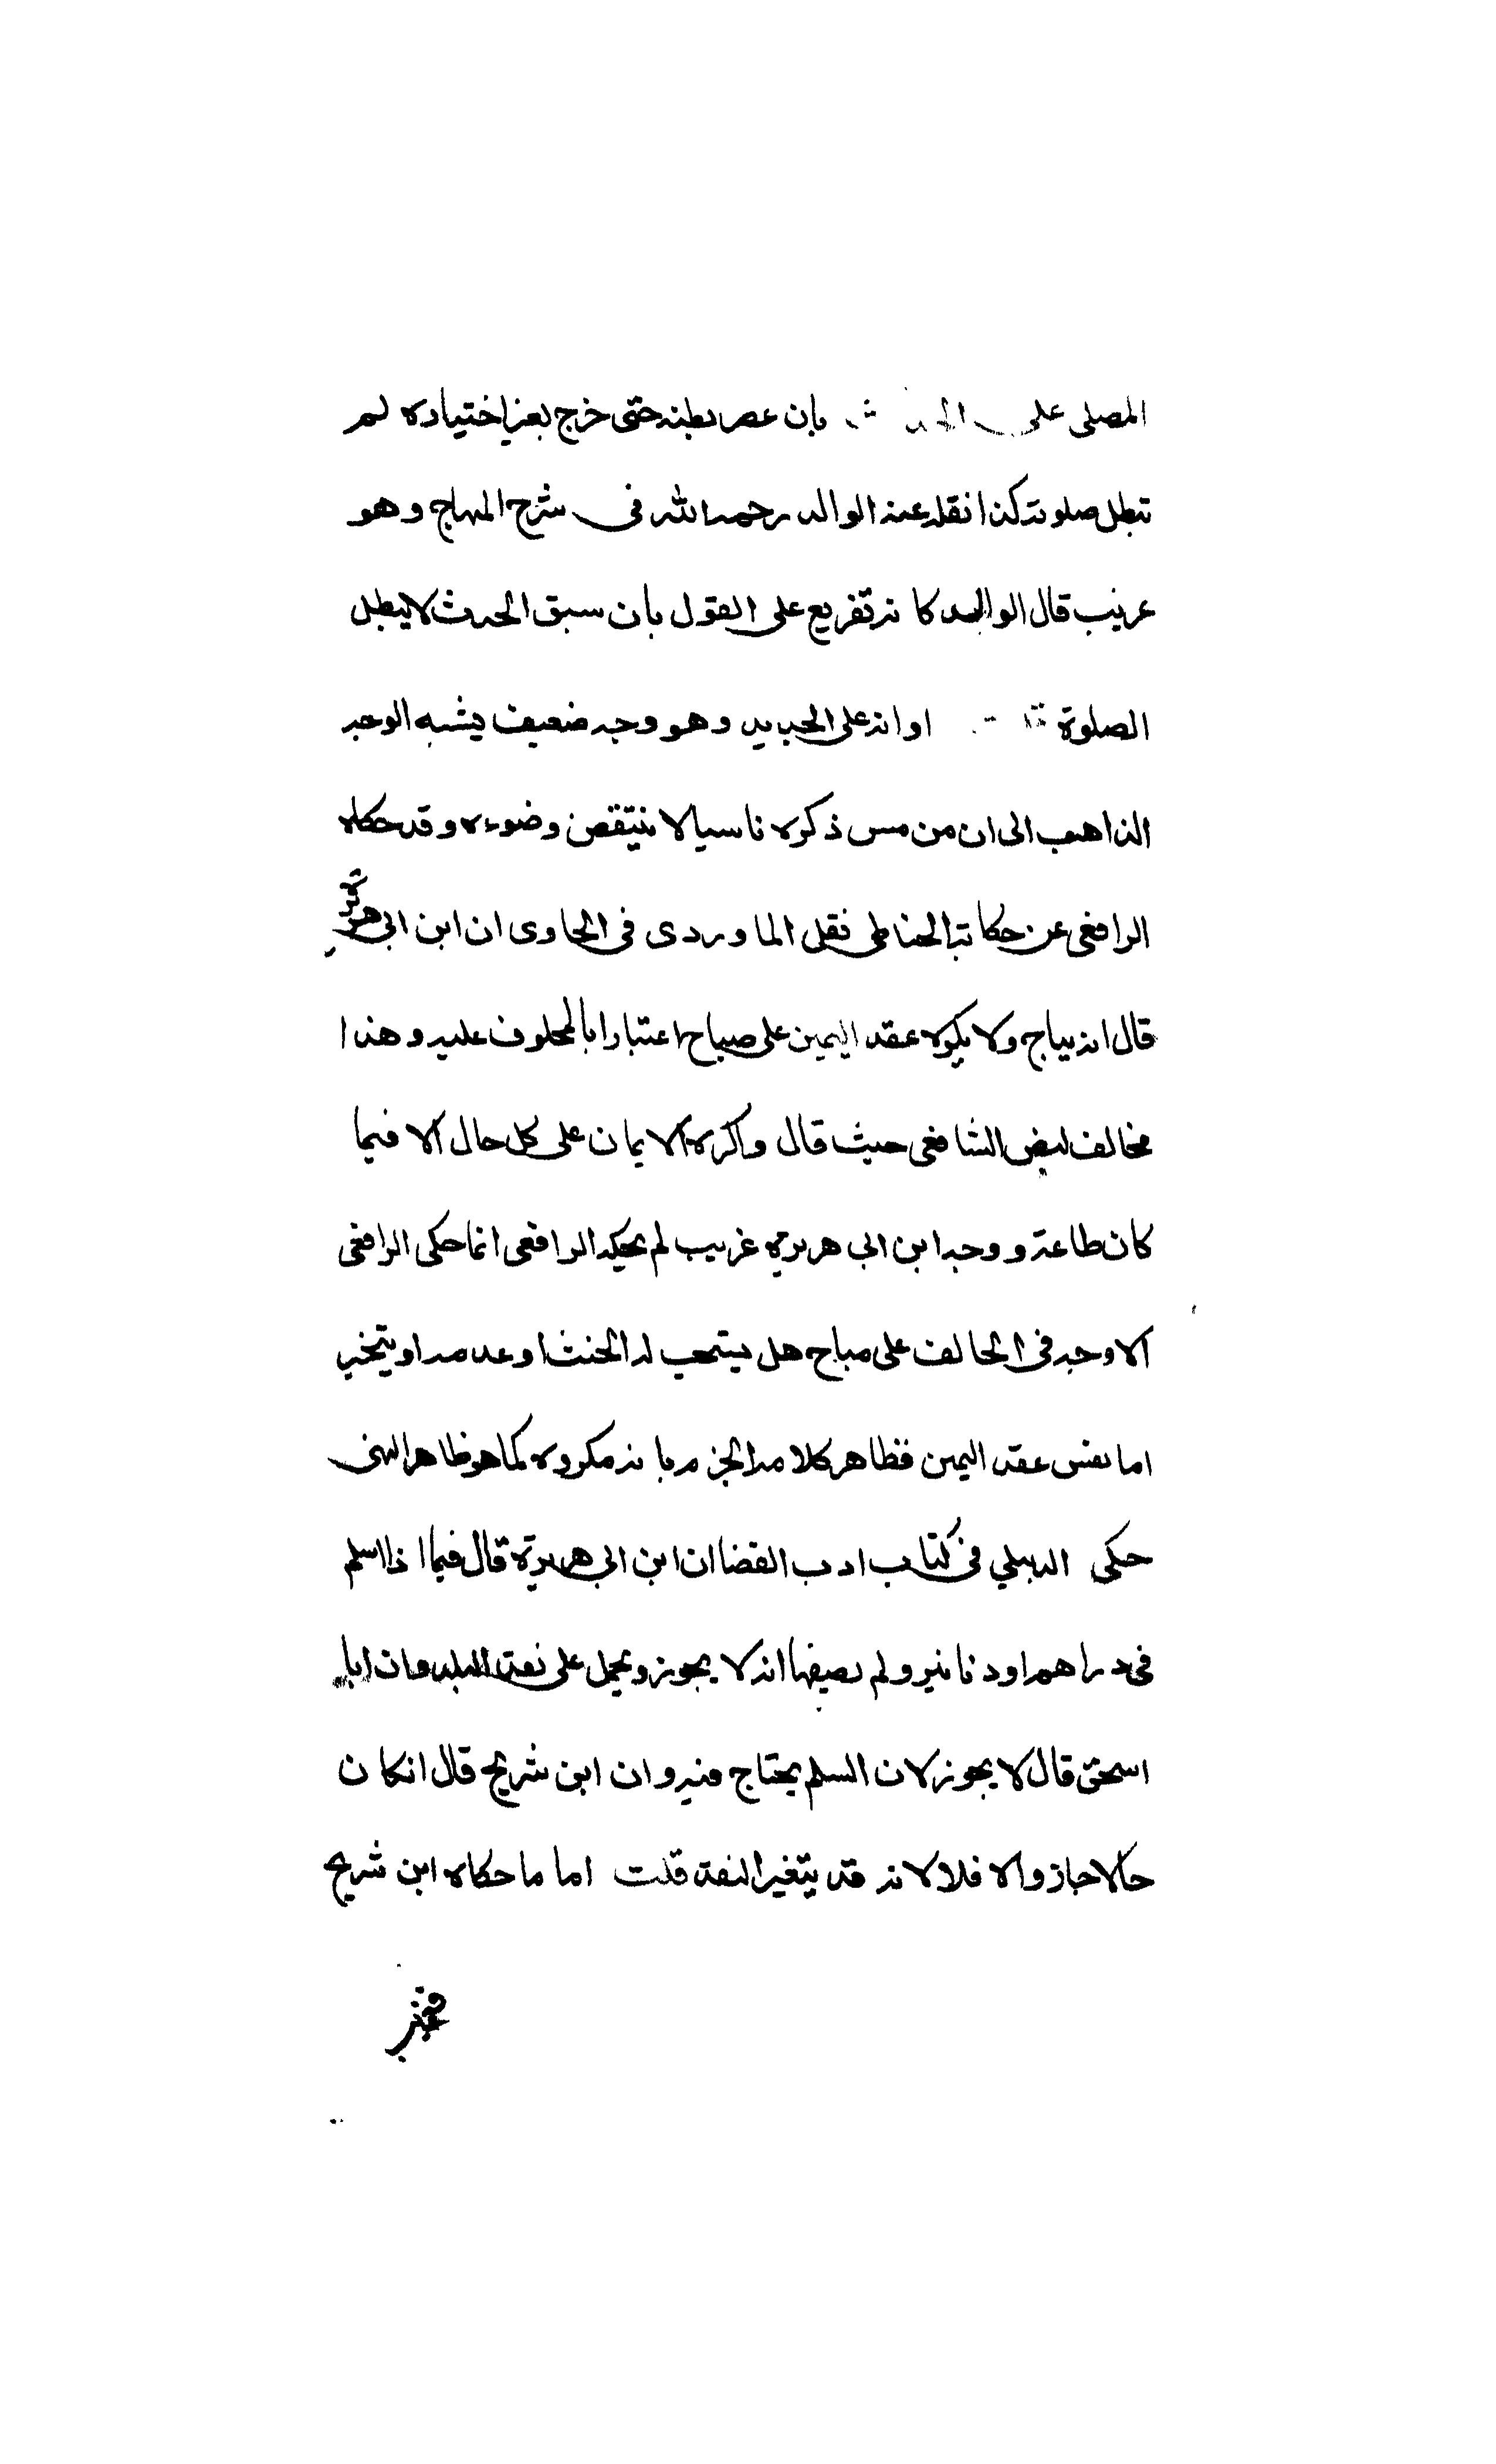 المصلى على الحدث بان عصر بطنه حتى خرج بغير اختياره لم
تبطل صلوته كذا نقله عنه الوالد رحمه الله فى شرح المنهاج وهو
غريب قال الوالد كانه تفريع على القول بان سبق الحدث لا يبطل
الصلوة او انه على الجديد وهو وجه ضعيف يشبه الوجه
الذاهب الى ان من مس ذكره ناسيا لا ينتقض وضوءه وقد حكاه
الرافعى عن حكاية الحناطى نقل الماوردى فى الحاوى ان ابن ابى هريرة
قال انه يباح ولا يكره عقد اليمين على مباح اعتبارا بالمحلوف عليه وهذا
مخالف لنص الشافعى حيث قال واكره الايمان على كل حال الا فيما
كان طاعة ووجه ابن ابى هريرة غريب لم يحكه الرافعى انما حكى الرافعى
الاوجه فى الحالف على مباح هل يستحب له الحنث او عدمه او يتخير
اما نفس عقد اليمين فظاهر كلامه الجزم بانه مكروه كما هو ظاهر النص
حكى الدبيلي فى كتاب ادب القضا ان ابن ابى هريرة قال فيما اذا اسلم
فى دراهم او دنانير ولم يصفها انه لا يجوز ويحمل على نقد البلد وان ابا
اسحق قال لا يجوز لان السلم يحتاج فيه وان ابن شريح قال ان كان
حالا جاز والا فلا لانه قد يتغير النقد قلت اما ما حكاه ابن شريح